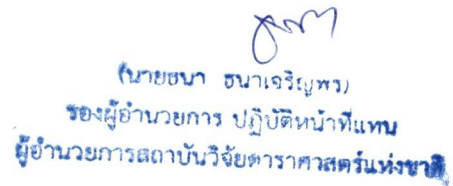 (นายธนา ธนาเจริญพร)
รองผู้อำนวยการ ปฏิบัติหน้าที่แทน
ผู้อำนวยการสถาบันวิจัยดาราศาสตร์แห่งชาติ